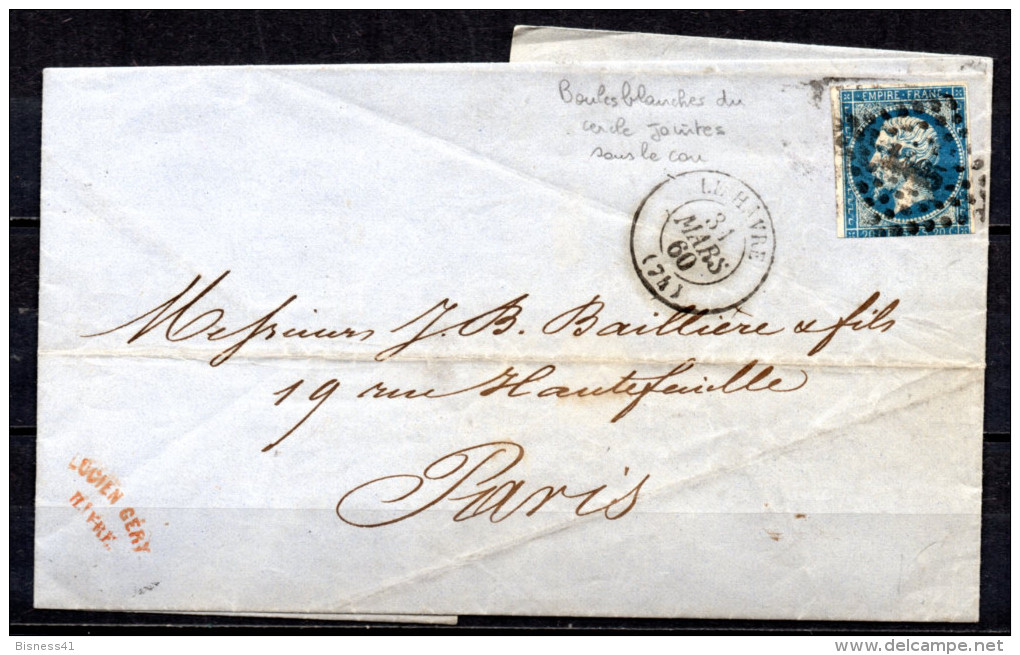 Boules blanches du
cercle jointes
sous le cou
EMPIRE · FRANC ·
20 C 20 C
LE HAVRE
31
MARS
60
(74)
Messieurs J. B. Baillière & fils
19 rue Hautefeuille
Paris
LUCIEN GÉRY
HAVRE.
Bisness41
www.delcampe.net